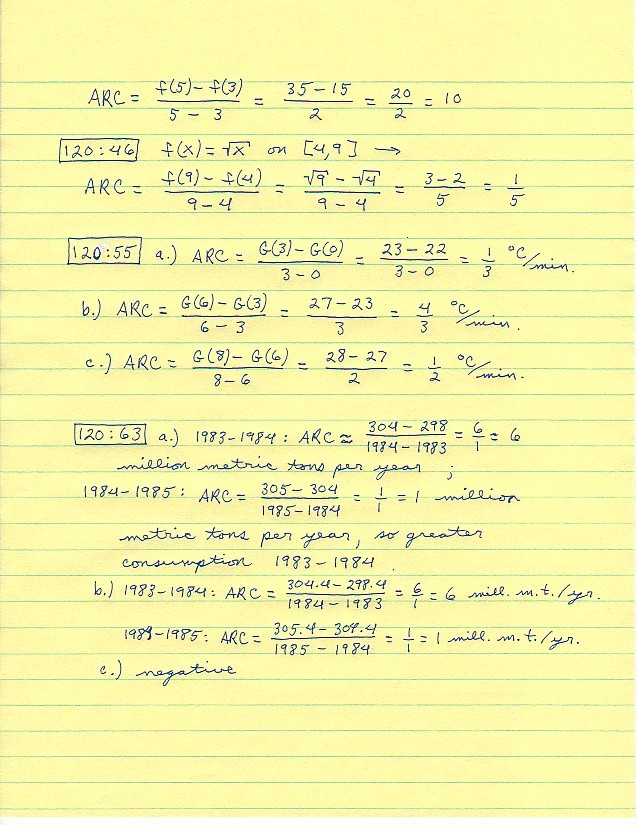 ARC = f(5) - f(3) / 5 - 3 = 35 - 15 / 2 = 20/2 = 10
120:46 f(x) = √x on [4,9] →
ARC = f(9) - f(4) / 9 - 4 = √9 - √4 / 9 - 4 = 3 - 2 / 5 = 1/5
120:55 a.) ARC = G(3) - G(0) / 3 - 0 = 23 - 22 / 3 - 0 = 1/3 °C/min.
b.) ARC = G(6) - G(3) / 6 - 3 = 27 - 23 / 3 = 4/3 °C/min.
c.) ARC = G(8) - G(6) / 8 - 6 = 28 - 27 / 2 = 1/2 °C/min.
120:63 a.) 1983-1984: ARC ≈ 304 - 298 / 1984 - 1983 = 6/1 = 6
million metric tons per year ;
1984-1985: ARC = 305 - 304 / 1985 - 1984 = 1/1 = 1 million
metric tons per year, so greater
consumption 1983-1984.
b.) 1983-1984: ARC = 304.4 - 298.4 / 1984 - 1983 = 6/1 = 6 mill. m.t./yr.
1984-1985: ARC = 305.4 - 304.4 / 1985 - 1984 = 1/1 = 1 mill. m.t./yr.
c.) negative